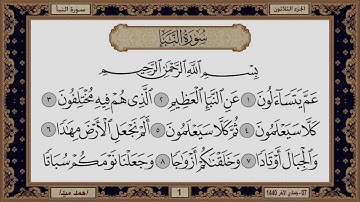 الجزء الثلاثون
سورة النبأ
سُورَةُ النَّبَإِ
بِسْمِ اللَّهِ الرَّحْمَٰنِ الرَّحِيمِ
عَمَّ يَتَسَاءَلُونَ ١ عَنِ النَّبَإِ الْعَظِيمِ ٢ الَّذِي هُمْ فِيهِ مُخْتَلِفُونَ ٣
كَلَّا سَيَعْلَمُونَ ٤ ثُمَّ كَلَّا سَيَعْلَمُونَ ٥ أَلَمْ نَجْعَلِ الْأَرْضَ مِهَادًا ٦
وَالْجِبَالَ أَوْتَادًا ٧ وَخَلَقْنَاكُمْ أَزْوَاجًا ٨ وَجَعَلْنَا نَوْمَكُمْ سُبَاتًا
07- جمادي الآخر 1440
1
احمد